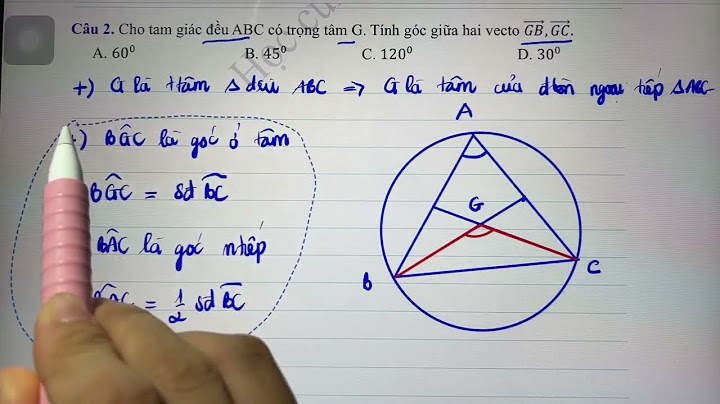 Câu 2. Cho tam giác đều ABC có trọng tâm G. Tính góc giữa hai vecto \overrightarrow{GB}, \overrightarrow{GC}.
A. 60⁰ B. 45⁰ C. 120⁰ D. 30⁰
+) G là t tâm Δ đều ABC => G là tâm của đtròn ngoại tiếp ΔABC
) BĜC là góc ở tâm
BĜC = sđ BC
BÂC là góc ntiếp
= 1/2 sđ BC
A
G
B
C
Học